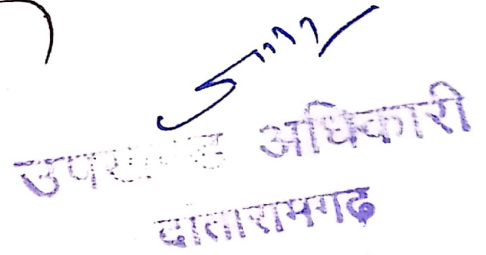 उपखण्ड अधिकारी
दातारामगढ